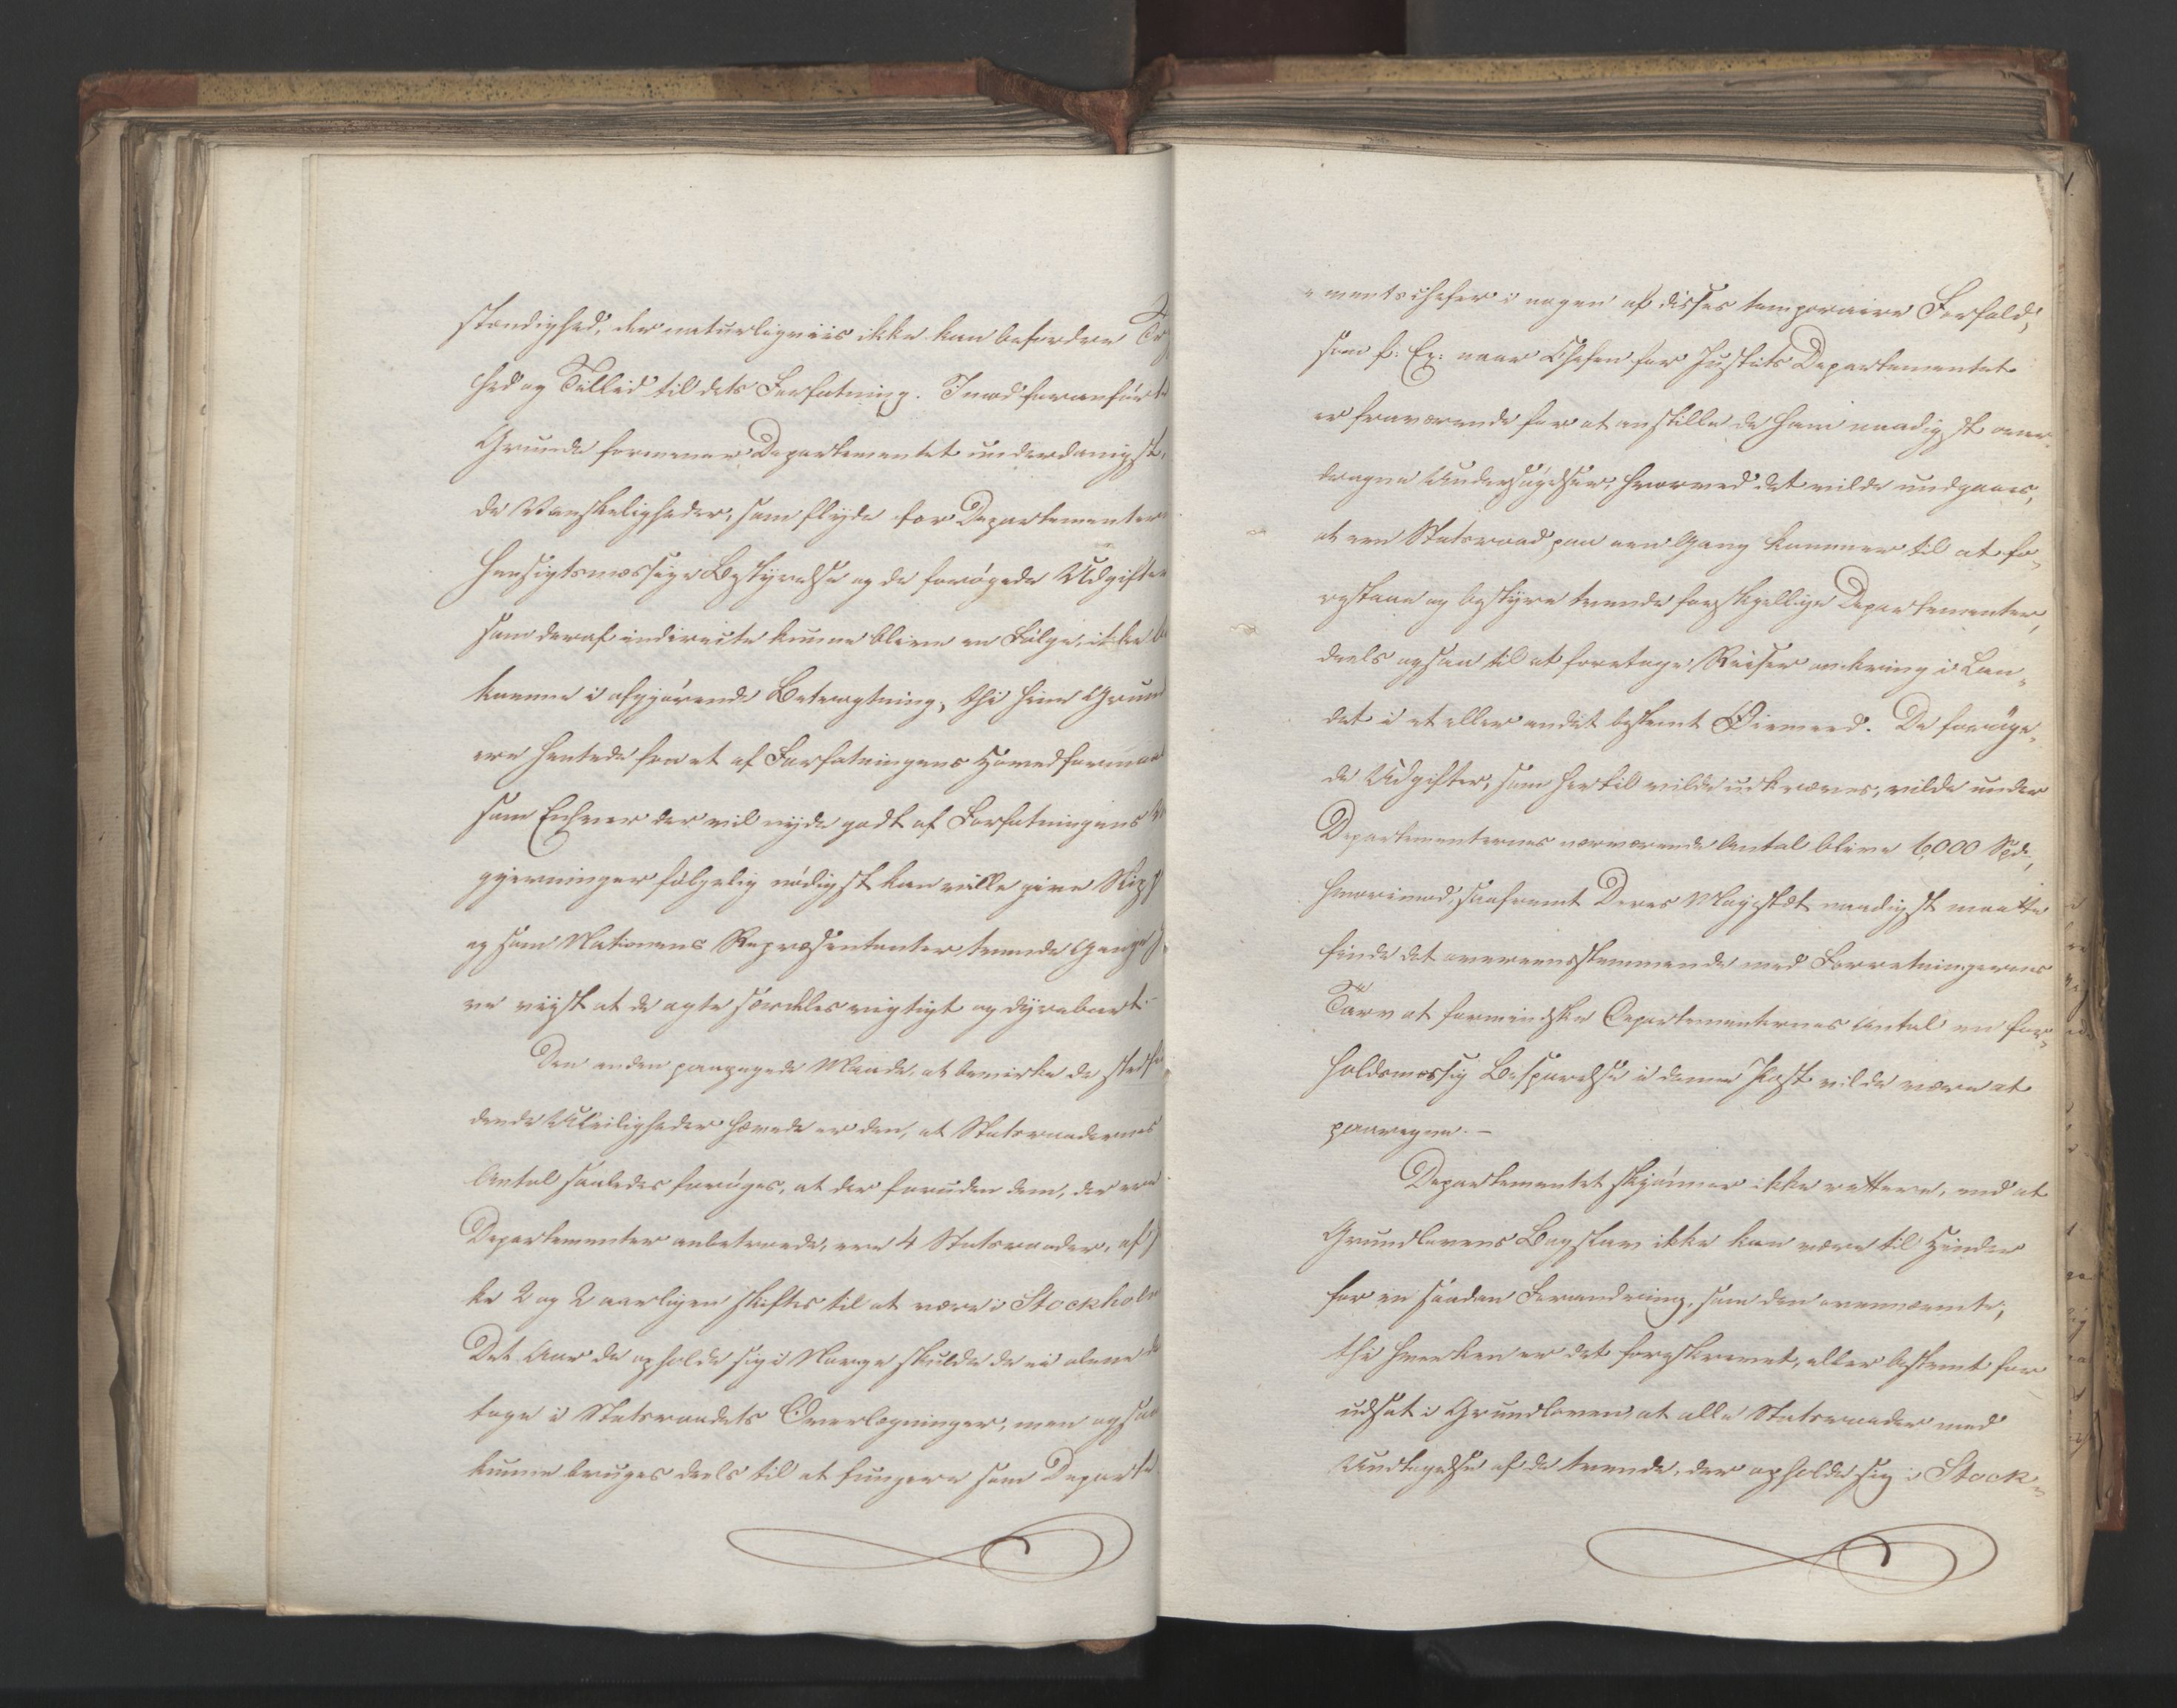 stændighed, der naturligviis ikke kan befordre
hed og Tillid til dets Forfatning. Imod foranførte
Grunde formener Departementet underdanigst,
de Vanskeligheder, som flyde for Departementer
hensigtsmæssige Bestyrelse og de forøgede Udgifter
som deraf indirecte kunne blive en Følge, ikke
komme i afgjørende Betragtning, thi hine Grund
ere hentede fra et af Forfatningens Hovedformaal
som Enhver der vil nyde godt af Forfatningens
gjerninger følgelig nødigst kan ville give Slip
og som Nationens Repræsentanter trende Gange
ve viist at de agte særdeles vigtigt og dyrebart.-
Den anden paapegede Maade, at bevirke de stedfin
dende Uleiligheder hævede er den, at Statsraadernes
Antal saaledes forøges, at der foruden dem, der ere
Departementer anbetroede, ere 4 Statsraader, af
ke 2 og 2 aarligen skiftes til at være i Stockholm
Det Aar de opholde sig i Norge skulde de ei alene
tage i Statsraadets Overlægninger, men ogsaa
kunne bruges deels til at fungere som Departe
mentschefer i nogen af disses temporaire Forfald,
som f: Ex: naar Chefen for Justits Departementet
er fraværende for at anstille de ham naadigst over
dragne Undersøgelser, hvorved det vilde undgaaes,
at een Statsraad paa een Gang kommer til at fo„
restaae og bestyre trende forskjellige Departementer,
deels ogsaa til at foretage Reiser omkring i Lan„
det i et eller andet bestemt Øiemeed. De forøge„
de Udgifter, som hertil vilde udkræves, vilde under
Departementernes nærværende Antal blive 6,000 Spd:,
hvorimod, saafremt Deres Majestæt naadigst maatte
finde det overeensstemmende med Forretningernes
Tarv at formindske Departementernes Antal en for„
holdsmæssig Besparelse i denne Post vilde være at
paaregne.-
Departementet skjønner ikke rettere, end at
Grundlovens Bogstav ikke kan være til Hinder
for en saadan Forandring, som den ovennævnte,
thi hverken er det foreskrevet, eller bestemt for
udsat i Grundloven, at alle Statsraader med
Undtagelse af de trende, der opholde sig i Stock„